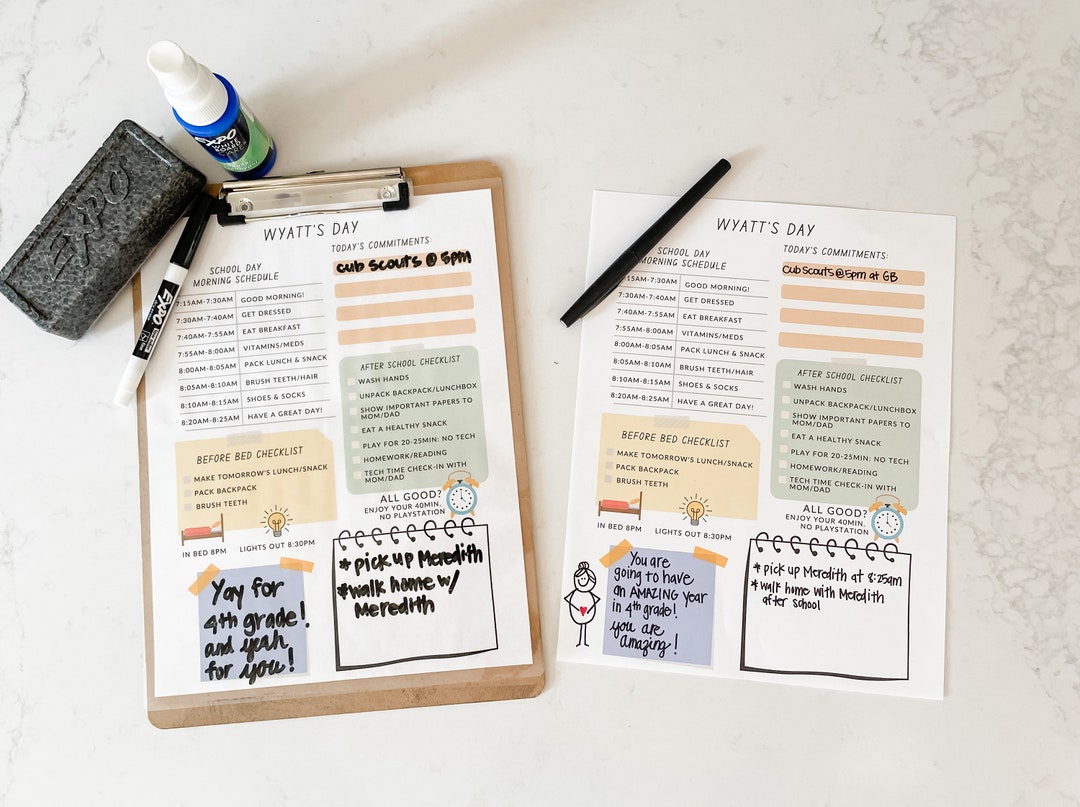 EXPO
EXPO
WHITE
BOARD
CARE
EXPO
WYATT'S DAY
SCHOOL DAY
MORNING SCHEDULE
7:15AM-7:30AM GOOD MORNING!
7:30AM-7:40AM GET DRESSED
7:40AM-7:55AM EAT BREAKFAST
7:55AM-8:00AM VITAMINS/MEDS
8:00AM-8:05AM PACK LUNCH & SNACK
8:05AM-8:10AM BRUSH TEETH/HAIR
8:10AM-8:15AM SHOES & SOCKS
8:20AM-8:25AM HAVE A GREAT DAY!
TODAY'S COMMITMENTS:
cub scouts @ 5pm
AFTER SCHOOL CHECKLIST
WASH HANDS
UNPACK BACKPACK/LUNCHBOX
SHOW IMPORTANT PAPERS TO
MOM/DAD
EAT A HEALTHY SNACK
PLAY FOR 20-25MIN: NO TECH
HOMEWORK/READING
TECH TIME CHECK-IN WITH
MOM/DAD
BEFORE BED CHECKLIST
MAKE TOMORROW'S LUNCH/SNACK
PACK BACKPACK
BRUSH TEETH
IN BED 8PM
LIGHTS OUT 8:30PM
ALL GOOD?
ENJOY YOUR 40MIN.
NO PLAYSTATION
Yay for
4th grade!
and yeah
for you!
* pick up Meredith
* walk home w/
Meredith
WYATT'S DAY
SCHOOL DAY
MORNING SCHEDULE
7:15AM-7:30AM GOOD MORNING!
7:30AM-7:40AM GET DRESSED
7:40AM-7:55AM EAT BREAKFAST
7:55AM-8:00AM VITAMINS/MEDS
8:00AM-8:05AM PACK LUNCH & SNACK
8:05AM-8:10AM BRUSH TEETH/HAIR
8:10AM-8:15AM SHOES & SOCKS
8:20AM-8:25AM HAVE A GREAT DAY!
TODAY'S COMMITMENTS:
cub scouts @ 5pm at GB
AFTER SCHOOL CHECKLIST
WASH HANDS
UNPACK BACKPACK/LUNCHBOX
SHOW IMPORTANT PAPERS TO
MOM/DAD
EAT A HEALTHY SNACK
PLAY FOR 20-25MIN: NO TECH
HOMEWORK/READING
TECH TIME CHECK-IN WITH
MOM/DAD
BEFORE BED CHECKLIST
MAKE TOMORROW'S LUNCH/SNACK
PACK BACKPACK
BRUSH TEETH
IN BED 8PM
LIGHTS OUT 8:30PM
ALL GOOD?
ENJOY YOUR 40MIN.
NO PLAYSTATION
You are
going to have
an AMAZING year
in 4th grade!
you are
amazing!
* pick up Meredith at 8:25am
* walk home with Meredith
after school